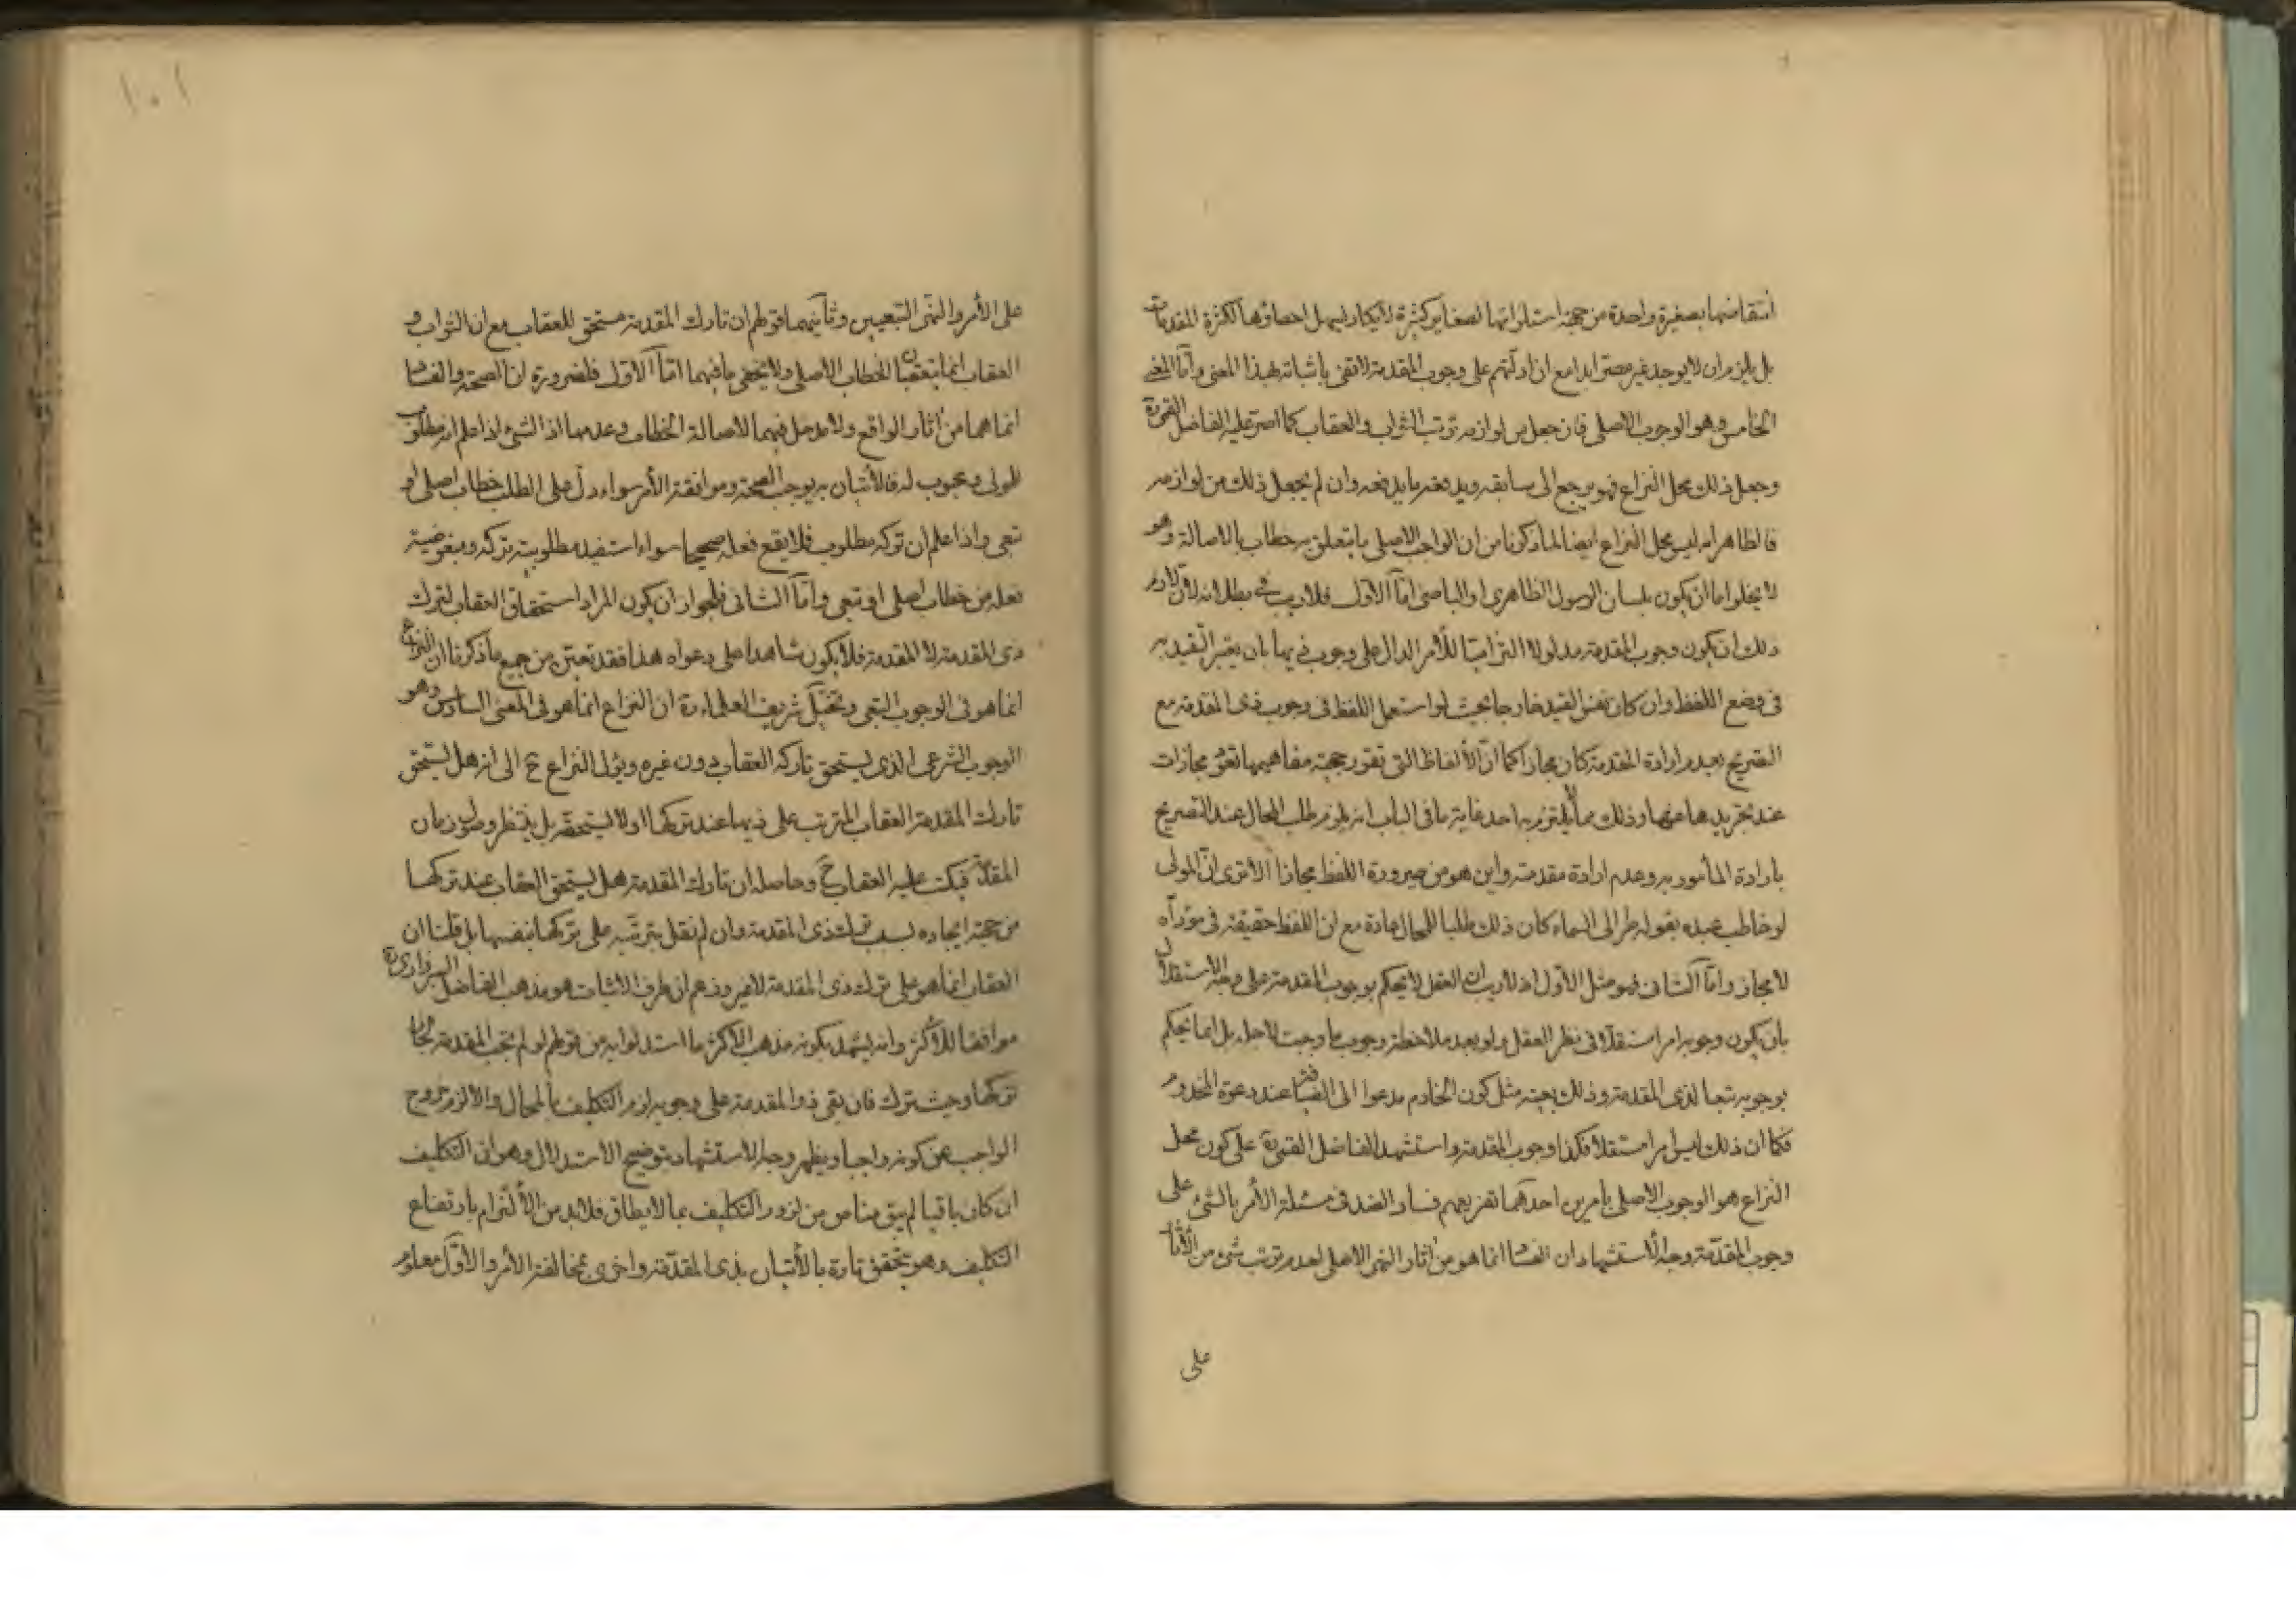 انتقاضها بصغيرة واحدة من جهة استلزامها لصغاير كثيرة لا يكاد يسهل احصاؤها لكثرة المقدمات
بل يلزم ان لا يوجد غير مصر ابدا مع ان ادلتهم على وجوب المقدمة لا تفى باثباته بهذا المعنى واما المعنى
الخامس وهو الوجوب الاصلى فان جعل من لوازمه ترتب الثواب والعقاب كما اصر عليه الفاضل القمى ره
وجعل ذلك محل النزاع فهو يرجع الى سابقه ويدفعه ما يدفعه وان لم يجعل ذلك من لوازمه
فالظاهر انه ليس محل النزاع ايضا لما ذكرنا من ان الواجب الاصلى ما يتعلق به خطاب بالاصالة وهو
لا يخلو اما ان يكون بلسان الرسول الظاهرى او الباطنى اما الاول فلا ريب فى بطلانه لان لازم
ذلك ان يكون وجوب المقدمة مدلولا التزاميا للأمر الدال على وجوب ذيها بان يعتبر التقييد به
فى وضع اللفظ وان كان نفس القيد خارجا بحيث لو استعمل اللفظ فى وجوب ذى المقدمة مع
التصريح بعدم ارادة المقدمة كان مجازا كما ان الألفاظ التى تقرر حجية مفاهيمها تعد مجازات
عند تجريدها عنها وذلك مما لا يلتزم به احد غاية ما فى الباب انه يلزم طلب المحال عند التصريح
بارادة المأمور به وعدم ارادة مقدمته واين هو من صيرورة اللفظ مجازا الا ترى ان المولى
لو خاطب عبده بقوله طر الى السماء كان ذلك طلبا للمحال عادة مع ان اللفظ حقيقة فى مؤداه
لا مجاز واما الثانى فهو مثل الاول اذ لا ريب ان العقل لا يحكم بوجوب المقدمة على وجه الاستقلال
بان يكون وجوبه امرا مستقلا فى نظر العقل ولو بعد ملاحظة وجوب ما وجبت لاجله بل انما يحكم
بوجوبه تبعا لذى المقدمة وذلك بعينه مثل كون الخادم مدعوا الى الضيافة عند دعوة المخدوم
فكما ان ذلك ليس امرا مستقلا فكذا وجوب المقدمة واستشهد الفاضل القمى ره على كون محل
النزاع هو الوجوب الاصلى بأمرين احدهما تفريعهم فساد الضد فى مسئلة الأمر بالشئ على
وجوب المقدمة وجه الاستشهاد ان الفساد انما هو من اثار النهى الاصلى لعدم ترتب شئ من الآثار
على
١٠١
على الأمر والنهى التبعيين وثانيهما قولهم ان تارك المقدمة مستحق للعقاب مع ان الثواب و
العقاب انما يتعقبان الخطاب الاصلى ولا يخفى ما فيهما اما الاول فلضرورة ان الصحة والفساد
انما هما من اثار الواقع ولا مدخل فيهما لاصالة الخطاب وعدمها اذ الشئ اذا علم انه مطلوب
للمولى ومحبوب له فالأتيان به يوجب الصحة وموافقة الأمر سواء دل على الطلب خطاب اصلى او
تبعى واذا علم ان تركه مطلوب فلا يقع فعله صحيحا سواء استفيد مطلوبية تركه ومبغوضية
فعله من خطاب اصلى او تبعى واما الثانى فلجواز ان يكون المراد استحقاق العقاب لترك
ذى المقدمة لا المقدمة فلا يكون شاهدا على دعواه هذا فقد تعين من جميع ما ذكرنا ان النزاع
انما هو فى الوجوب التبعى وتخيل شريف العلماء ره ان النزاع انما هو فى المعنى السادس وهو
الوجوب الشرعى الذى يستحق تاركه العقاب دون غيره ويؤل النزاع ح الى انه هل يستحق
تارك المقدمة العقاب المترتب على ذيها عند تركها او لا يستحقه بل ينتظر وصول زمان
المقدمة فيكتب عليه العقاب ح وحاصله ان تارك المقدمة هل يستحق العقاب عند تركها
من جهة ايجاده لسبب ترك ذى المقدمة وان لم نقل بترتبه على تركها بنفسها بل قلنا ان
العقاب انما هو على ترك ذى المقدمة لا غير وزعم ان طرف الاثبات هو مذهب الفاضل السبزوارى ره
موافقا للأكثر وانه يشهد بكونه مذهب الاكثر ما استدلوا به من قولهم لو لم تجب المقدمة لجاز
تركها وحيث ترك فان بقى ذو المقدمة على وجوبه لزم التكليف بالمحال والا لزم خروج
الواجب عن كونه واجبا ويظهر وجه الاستشهاد بتوضيح الاستدلال وهو ان التكليف
ان كان باقيا لم يبق مناص من لزوم التكليف بما لا يطاق فلا بد من الألتزام بارتفاع
التكليف وهو يتحقق تارة بالأتيان بذى المقدمة واخرى بمخالفة الأمر والاول معلوم